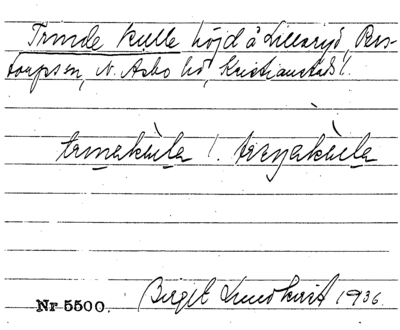 Trinde kulle höjd å Lillaryd, Pers-
torpsn, N. Åsbo hd, Kristianstads l.
trinakùla l.
Nr 5500.
Birgit Lundkvist 1936.